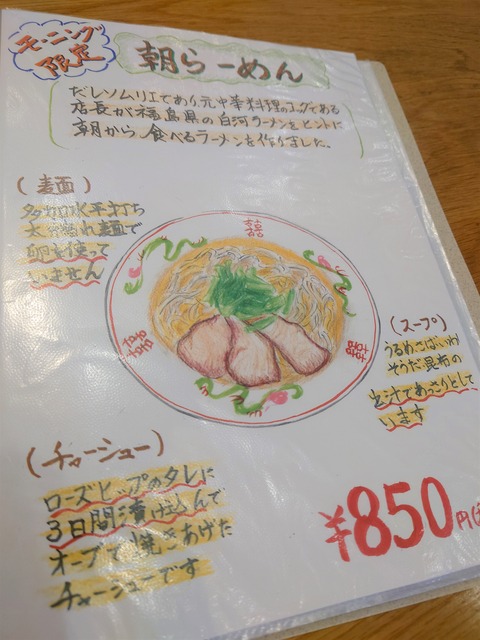 モーニング
限定
朝らーめん
だしソムリエであり、元中華料理のコックである
店長が福島県の白河ラーメンをヒントに
朝から食べるラーメンを作りました。
(麺)
多加水平打ち
太ちぢれ麺で
卵を使って
いません
(スープ)
うるめ、さば、いわし
そうだ、昆布の
出汁であっさりとして
います
(チャーシュー)
ローズヒップのタレに
3日間漬け込んで
オーブンで焼きあげた
チャーシューです
¥850円